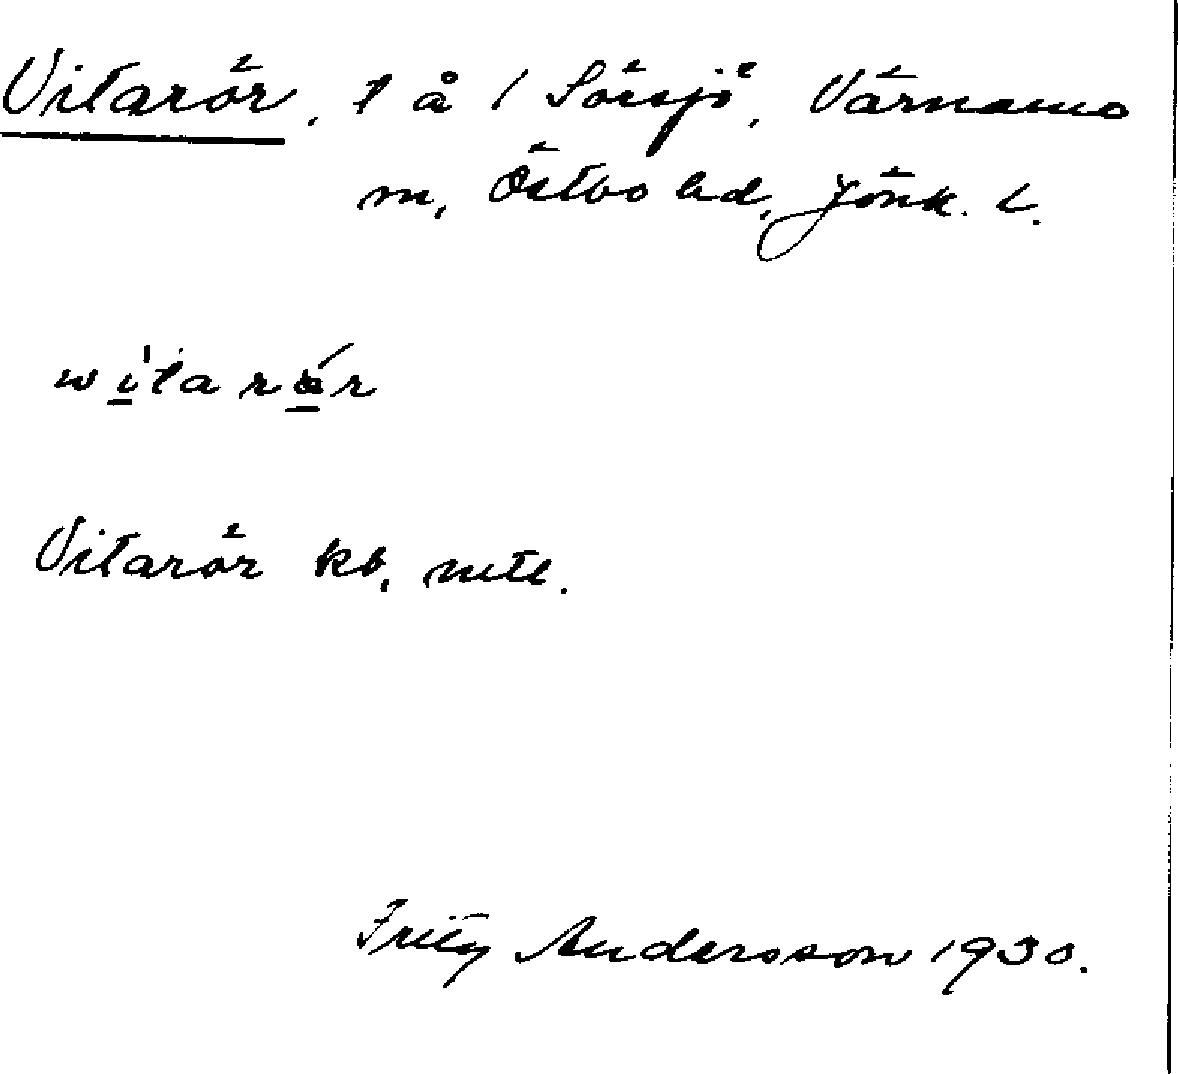 Vitarör, t å 1 Sörsjö, Värnamo
m, Östbo hd, Jönk. l.
wita rör
Vitarör kb, mtl.
Fritz Andersson 1930.